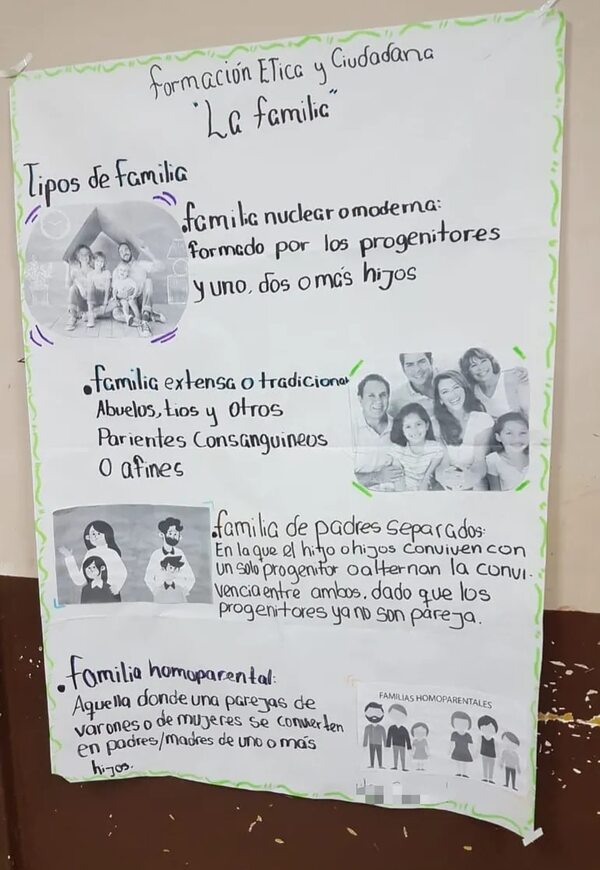 Formación Etica y Ciudadana
"La familia"
Tipos de familia
.familia nuclear o moderna:
formado por los progenitores
y uno, dos o más hijos
.familia extensa o tradicional
Abuelos, tios y otros
Parientes Consanguineos
O afines
.familia de padres separados:
En la que el hijo o hijos conviven con
un solo progenitor o alternan la convi-
vencia entre ambos, dado que los
progenitores ya no son pareja.
.familia homoparental:
Aquella donde una parejas de
varones o de mujeres se convierten
en padres/madres de uno o más
hijos.
FAMILIAS HOMOPARENTALES